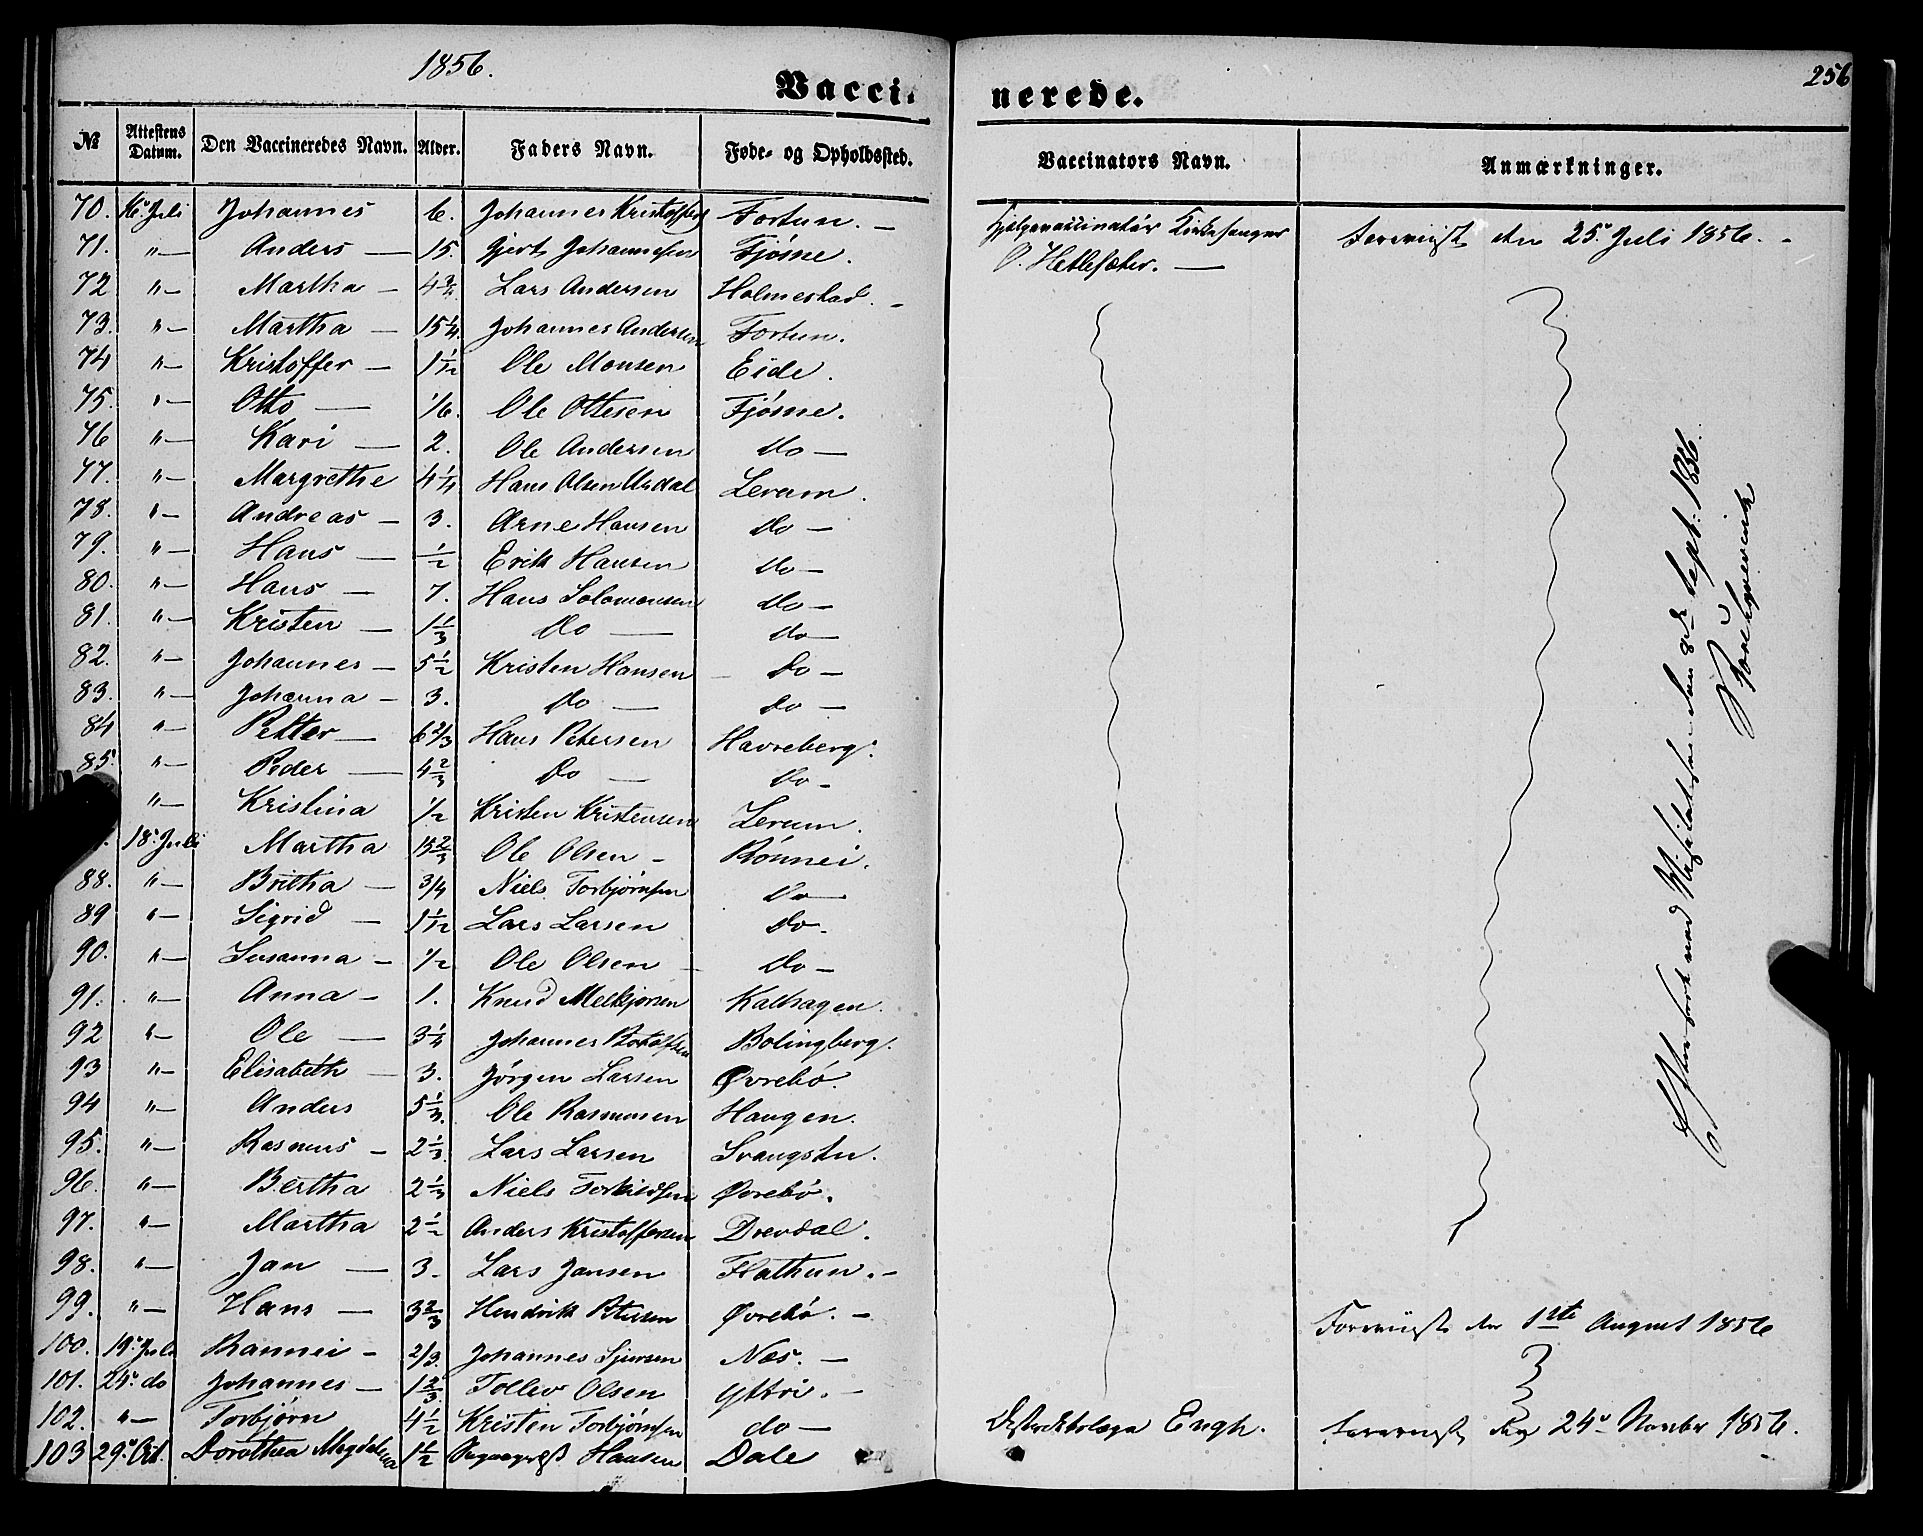 1856.
256
Vaccinerede.
№ Attestens Datum. Den Vaccineredes Navn. Alder. Faders Navn. Føde- og Opholdssted. Vaccinators Navn. Anmærkninger.
70. 16. Juli Johannes 6. Johannes Kristoffers Fortun. Hjelpevaccinatør Kirkesanger den 25. Juli 1856.
71. "— Anders — 15. Gjert Johannesen Fjøsne. O. Hetlesæter. —
72 "— Martha — 4 3/4 Lars Andersen Holmestad.
73. "— Martha — 15 1/4 Johannes Andersen Fortun.
74 "— Kristoffer — 1 1/12 Ole Monsen Eide.
75. "— Otto — 1/6. Ole Ottesen Fjøsne.
76 "— Kari — 2. Ole Andersen do —
77. "— Margrethe 4 1/4 Hans Olsen Urdal Lerum.
78. "— Andreas — 3. Arne Hansen do —
79. "— Hans — 1/2 Erik Hansen do —
80. "— Hans — 7. Hans Solomonsen do —
81. "— Kristen — 1 1/3 do — do —
82. "— Johannes — 5 1/2 Kristen Hansen do —
83. "— Johanna — 3. do — do —
84 "— Petter — 6 2/3 Hans Petersen Havreberg.
85. "— Peder — 4 2/3 do — do —
"— Kristina 1/2 Kristen Kristensen Lerum.
18. Juli Martha 15 2/3 Ole Olsen — Rønnei.
88. "— Britha — 3/4 Niels Torbjørnsen do —
89 "— Sigrid — 1 1/12 Lars Larsen do —
90. "— Susanna — 1/2 Ole Olsen — do —
91. "— Anna — 1. Knud Melkjorsen Kalhagen.
92 "— Ole — 3 1/4 Johannes Bolingberg.
93 "— Elisabeth — 3. Jørgen Larsen Øvrebø.
94 "— Anders 5 1/3. Ole Rasmusen Haugen.
95. "— Rasmus — 2 1/3. Lars Larsen
96. "— Bertha 2 1/3 Niels Torkildsen Øvrebø.
97. "— Martha 2 1/2 Anders Kristoffersen Drevdal.
98. "— Jan — 3. Lars Jansen Flathun. —
99. "— Hans — 3 2/3 Hendrik Petersen Øvrebø. — den 1ste August 1856
100. 19. Juli Rannei — 2/3. Johannes Sjursen Næs. —
101. 24. do Johannes — 1 2/3. Tollev Olsen Yttri. —
102. "— Torbjørn 4 1/2 Kristen Torbjørnsen do —
103 29. Oct. Dorothea Magdalena 1 1/2 Hansen Dale Districtslæge Engh. den 24. Novber 1856.
Sept. 1856.